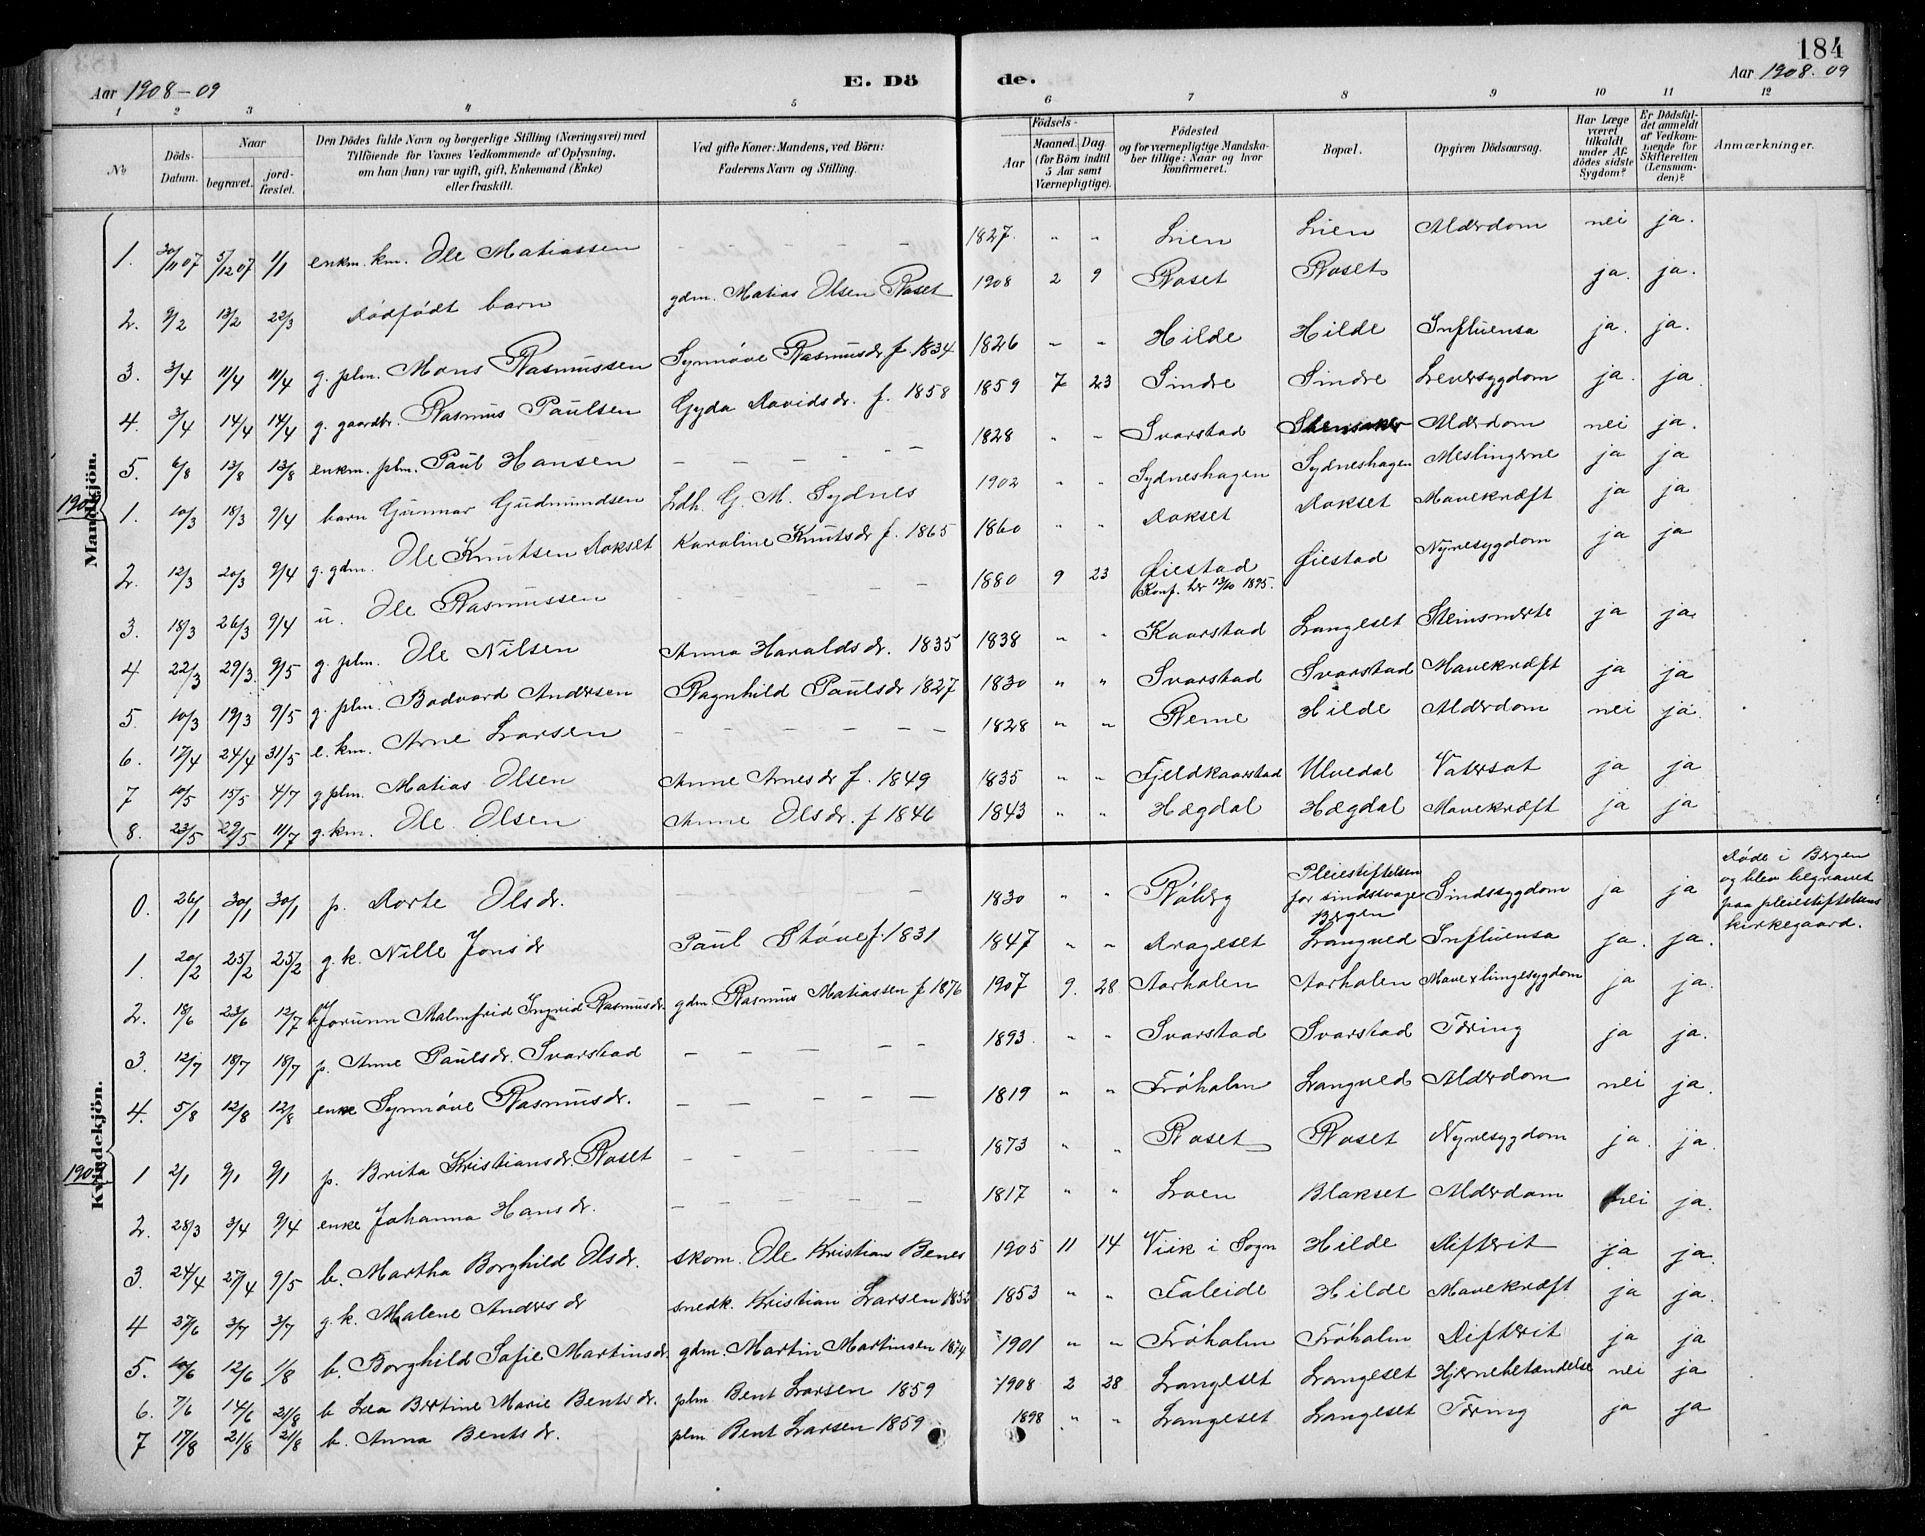 184
Aar 1908-09
E. Dö de.
Aar 1908-09
1 2 3 4 5 6 7 8 9 10 11 12
No
Döds-Datum.
Naar
begravet.
jord-fæstet.
Den Dödes fulde Navn og borgerlige Stilling (Næringsvei) med
Tilföiende for Voxnes Vedkommende af Oplysning,
om han (hun) var ugift, gift, Enkemand (Enke)
eller fraskilt.
Ved gifte Koner: Mandens, ved Börn:
Faderens Navn og Stilling.
Födsels-
Aar
Maaned. Dag
(for Börn indtil
5 Aar samt
Værnepligtige).
Födested
og for værnepligtige Mandska-
ber tillige: Naar og hvor
konfirmeret.
Bopæl.
Opgiven Dödsaarsag.
Har Læge
været
tilkaldt
under Af-
dödes sidste
Sygdom?
Er Dödsfal-
det anmeldt
af Vedkom-
mende for
Skifteretten
(Lensman-
den)?
Anmærkninger.
Mandkjön.
1. 30/11 07 5/12 07 1/1 enkm. km. Ole Matiassen - - - - 1827. " " Loen Loen Alderdom nei ja.
2. 9/2 13/2 22/3 Dödfödt barn gdm. Matias Olsen Roset 1908 2 9 Roset Roset ja. ja.
3. 3/4 11/4 11/4 g. plm. Mons Rasmussen Synnöve Rasmusdr f 1834 1826 " " Hilde Hilde Influensa ja. ja.
4. 3/4 14/4 14/4 g. gaardbr. Rasmus Paulsen Gyda Davidsdr. f. 1858 1859 7 23 Sindre Sindre Leversygdom ja. ja.
5. 6/8 13/8 13/8 enkm. plm. Paul Hansen - - - - - 1828 " " Svarstad Stensaker Alderdom nei ja.
1. 10/3 18/3 9/4 barn Gunnar Gudmundsen Ldh. G. M. Sydnes 1902 " " Sydneshagen Sydneshagen Meslingerne ja ja
2. 12/3 20/3 9/4 g. gdm. Ole Knutsen Dokset Karoline Knutsdr f. 1865 1860 " " Dokset Dokset Mavekræft ja ja
3. 18/3 26/3 9/4 u. Ole Rasmussen - - - - - 1880 9 23 Öiestad Öiestad Nyresygdom ja ja
Konf. her 13/10 1895.
4 22/3 29/3. 9/5 g. plm. Ole Nilsen Anna Haraldsdr. 1835 1838 " " Kaarstad Langeset Steinsmerte ja ja
5. 10/3 19/3 9/5 g. plm. Bodvard Andersen Ragnhild Paulsdr 1827 1830 " " Svarstad Svarstad Mavekræft ja ja
6. 17/4 24/4 31/5 e. km. Arne Larsen - - - - - 1828 " " Reme Hilde Alderdom nei ja.
7 10/5 15/5 4/7 g plm. Matias Olsen Anne Arnesdr f. 1849 1835 " " Fjeldkaarstad Ulvedal Vatersot ja ja
8. 23/5 29/5 11/7 g. km. Ole Olsen Anne Olsdr. f 1846 1843 " " Hægdal Hægdal Mavekræft ja ja
Kvindekjön.
0. 26/1 30/1 30/1 p. Dorte Olsdr. 1830 " " Röberg Pleiestiftelsen for sindssvage Bergen Sindssygdom ja ja
Döde i Bergen
og blev begravet
paa pleiestiftelsens
kirkegaard.
1. 20/2 25/2 25/2 g. k. Nille Jonsdr Paul Stöve f. 1831 1847 " " Drageset Langved Influensa ja. ja.
2. 18/6 23/6 12/7 b. Jorunn Malmfrid Ingrid Rasmusdr. gdm Rasmus Matiassen f 1876 1907 9. 28 Aarholen Aarholen Mave x lungesygdom ja ja.
3. 12/7 18/7 18/7 p. Anne Paulsdr. Svarstad - - - - - 1893 " " Svarstad Svarstad Tæring ja ja.
4. 5/8 12/8 12/8 enke Synnöve Rasmusdr. - - - - - 1819 " " Fröholm Langved Alderdom nei ja.
1 2/1 9/1 9/1 p. Brita Kristiansdr. Roset - - - - - 1873 " " Roset Roset Nyresygdom ja. ja.
2. 28/3 3/4 9/4 enke Johanna Hansdr. - - - - - 1817 " " Loen Blakset Alderdom nei ja.
3. 24/4 27/4 9/5 b. Martha Borghild Olsdr. skom. Ole Kristian Benes 1905 11 14 Viik i Sogn Hilde Difterit ja ja.
4 27/6 3/7 3/7 g. k. Malene Andersdr snedk. Kristian Larsen 1852 1853 " " Faleide Hilde Mavekræft ja ja.
5. 10/6 12/6 1/8 b. Borghild Sofie Martinsdr. gdm. Martin Martinsen 1874 1901 " " Fröholm Fröholm Difterit ja ja
6. 7/6 14/6 21/8 b Lea Bertine Marie Bentsdr. plm Bent Larsen 1859 1908 2 28 Langeset Langeset Hjernebetændelse nei ja
7 17/8 21/8 21/8 b. Anna Bentsdr. plm. Bent Larsen 1859 1898 " " Langeset Langeset Tæring ja ja